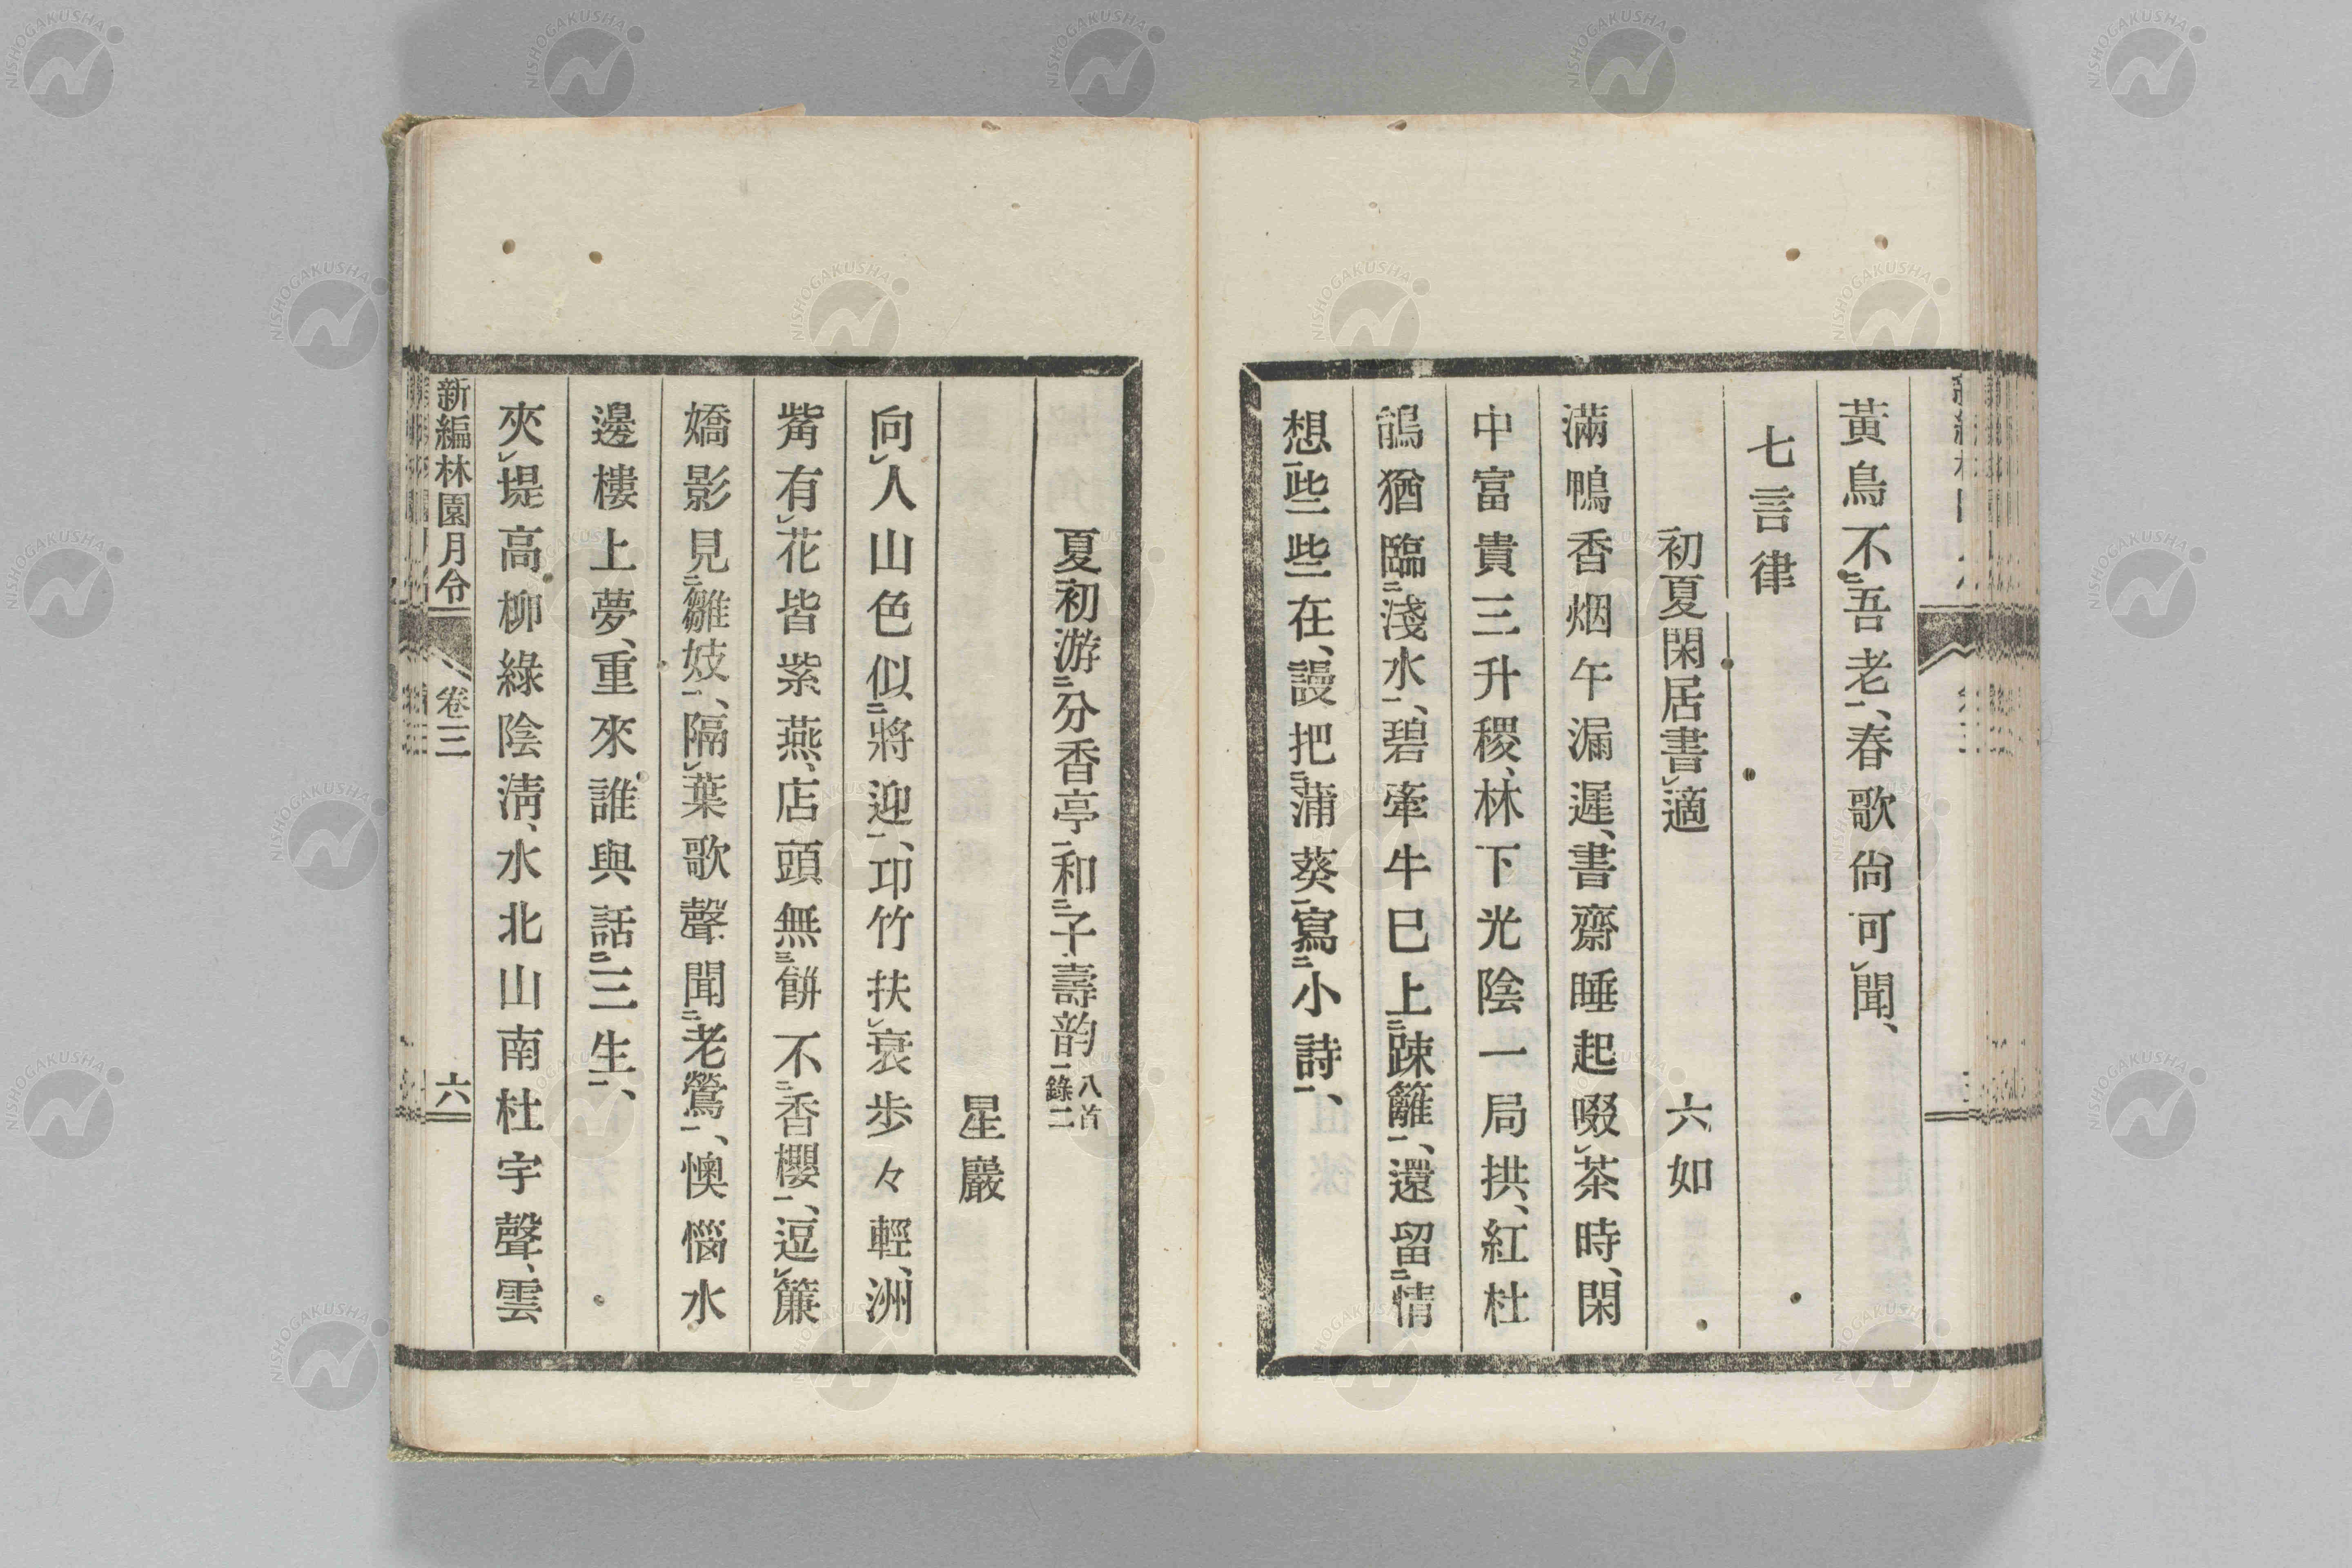 黃鳥不㆓吾老㆒、春歌尙可㆑聞、
七言律
初夏閑居書㆑適　六如
滿鴨香烟午漏遲、書齋睡起啜㆑茶時、閑
中富貴三升稷、林下光陰一局拱、紅杜
鵑猶臨㆓淺水㆒、碧牽牛巳上㆓疎籬㆒、還留㆓情
想㆒些些在、謾把㆓蒲葵㆒寫㆓小詩㆒、
夏初游㆓分香亭㆒和㆓子壽韵㆒八首錄二
星巖
向㆑人山色似㆓將迎㆒、邛竹扶㆑衰步々輕、洲
觜有㆑花皆紫燕、店頭無㆘餠不㆓香櫻㆒、逗㆑簾
嬌影見㆓雛妓㆒、隔㆑葉歌聲聞㆓老鶯㆒、懊惱水
邊樓上夢、重來誰與話㆓三生㆒、
夾㆑堤高柳綠陰淸、水北山南杜宇聲、雲
新編林園月令　卷三　六
NISHOGAKUSHA